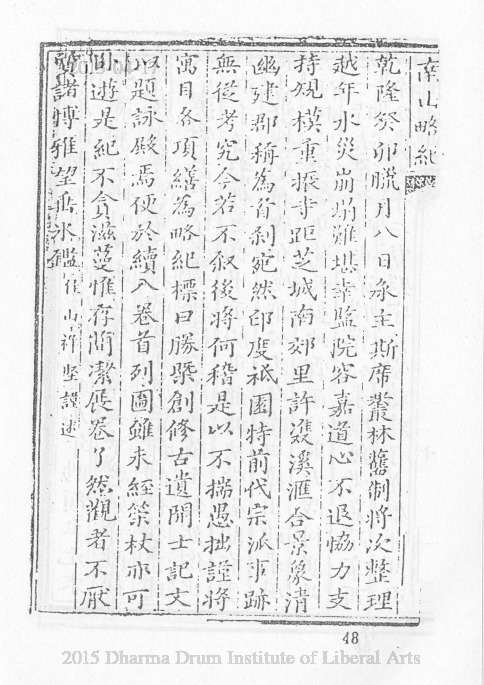 南山略紀
乾隆癸卯臘月八日承主斯席叢林舊制將次整理
越年水災崩塌難堪幸監院容嘉道心不退恊力支
持規模重振寺距芝城南郊里許雙溪滙合景象清
幽建郡稱為首剎宛然印度祇園特前代宗派事跡
無從考究今若不叙後將何稽是以不揣愚拙謹將
寓目各項繕為略紀標曰勝槩創修古遺開士記文
以題詠殿焉便於續入卷首列圖雖未經筞杖亦可
臥遊是紀不貪滋蔓惟存簡潔展卷了然觀者不厭
贅諸博雅望垂氷鑑住山祚堅謹述
48
2015 Dharma Drum Institute of Liberal Arts